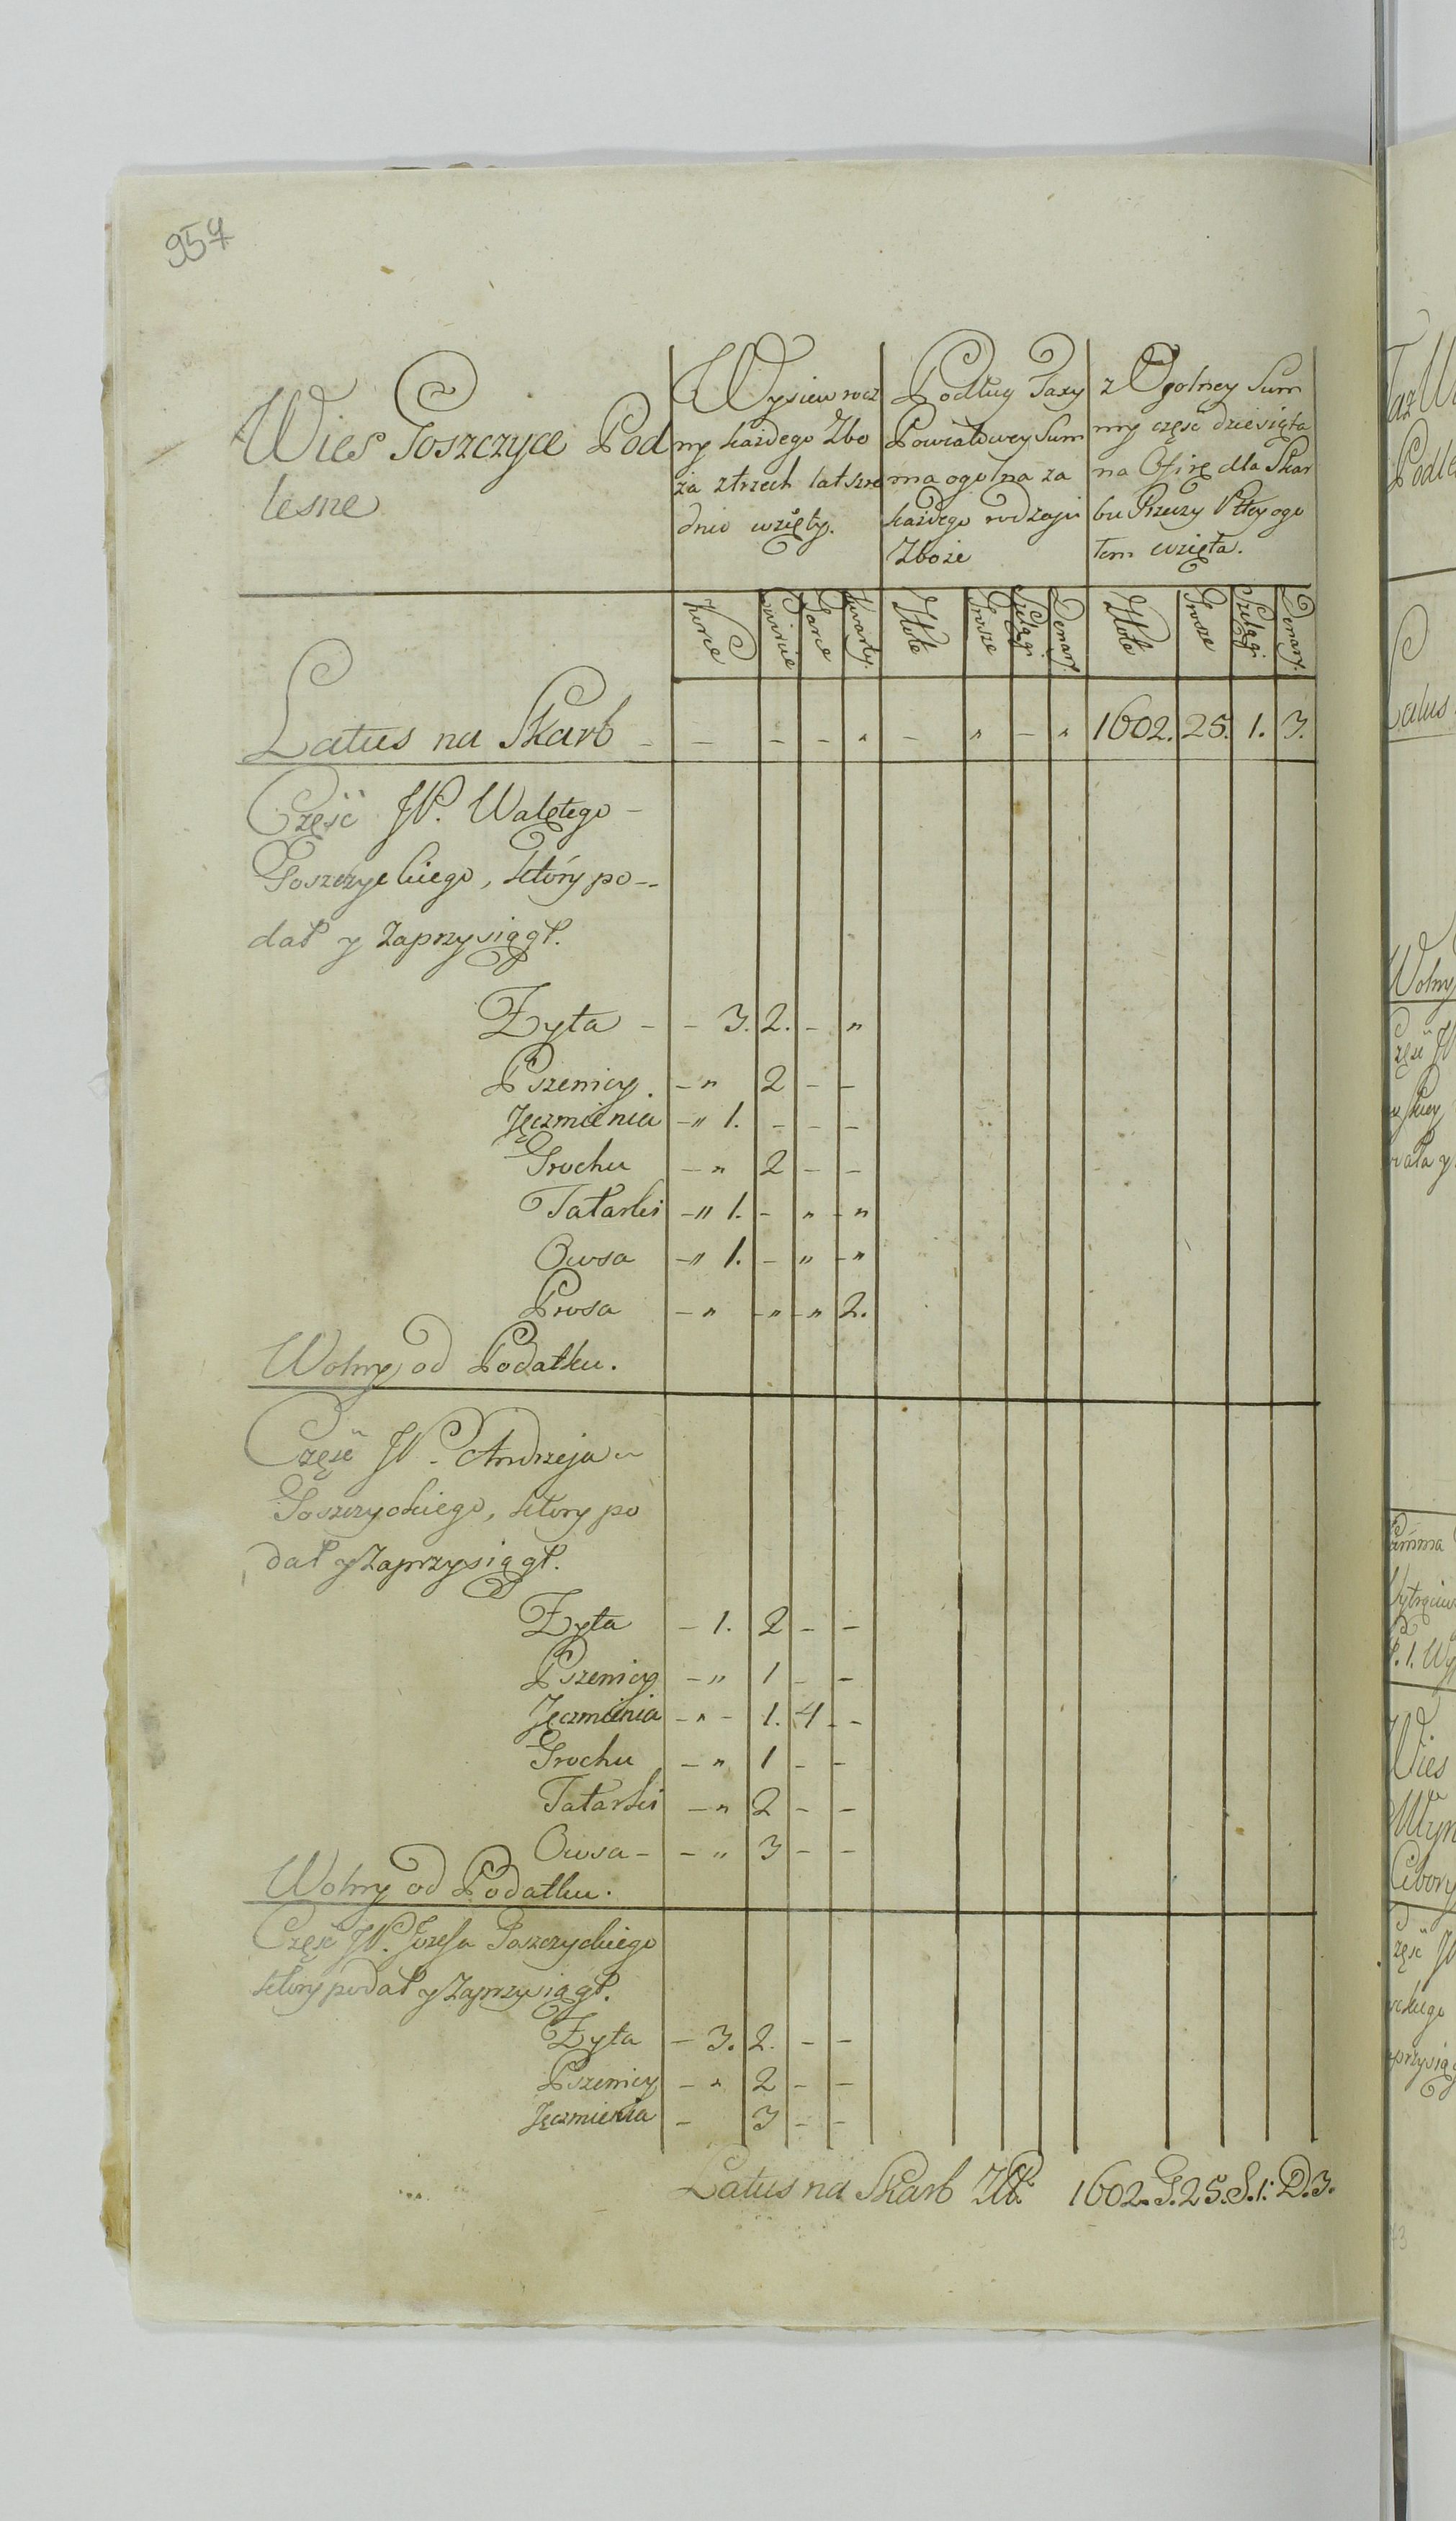 957
Wies Goszczyce Pod
lesne
Wysiew rocz
ny każdego Zbo
ża z trzech lat szre
dnio wzięty.
Podług Taxy
Powiatowey Sum
ma ogolna za
każdego rodzaju
Zboże
z Ogolney Sum
my częsc dziesiąta
na Ofirę dla Skar
bu Rzeczy Pltey ogo
łem wzięta.
Korce Cwircie Garce Kwarty. Złote Grosze Szelągi Denary. Złote Grosze Szelągi Denary.
Latus na Skarb - - - - " - " - " 1602. 25. 1. 3.
Częsć JP. Walętego -
Goszczyckiego, ktory po-
dał y Zaprzysiągł.
Zyta - - 3. 2. - "
Pszenicy. - " 2 - -
Jęczmienia - " 1. - - -
Grochu - " 2 - -
Tatarki - " 1. - " - "
Owsa - " 1. - " - "
Prosa - " - " - " 2.
Wolny od Podatku.
Częsć JP. Andrzeja
Goszczyckiego, ktory po
dał y Zaprzysiągł.
Zyta - 1. 2 - -
Pszenicy - " 1 - -
Jęczmienia - " - 1. 4 - -
Grochu - " 1 - -
Tatarki - " 2 - -
Owsa - - " 3 - -
Wolny od Podatku.
Częsć JP. Jozefa Goszczyckiego
ktory podał y Zaprzysiągł.
Zyta - 3. 2. - -
Pszenicy - " 2 - -
Jęczmienia - 3 - -
Latus na Skarb Złt 1602. G. 25. S. 1. D. 3.